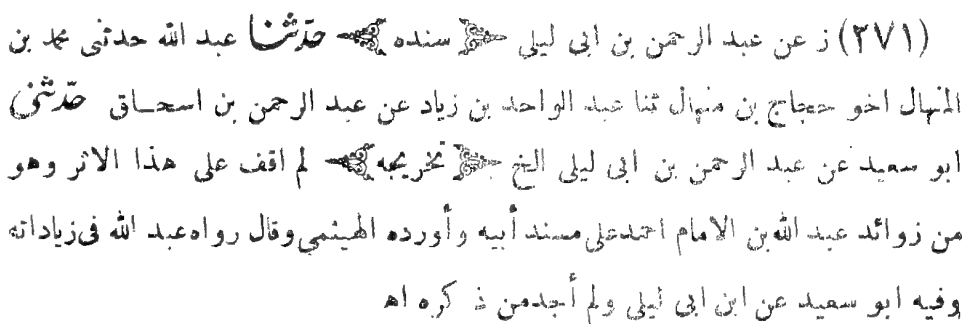 (٢٧١) ز عن عبد الرحمن بن ابى ليلى ﴿ سنده ﴾ حدّثنا عبد الله حدثنى محمد بن
المنهال اخو حجاج بن منهال ثنا عبد الواحد بن زياد عن عبد الرحمن بن اسحاق حدّثنى
ابو سعيد عن عبد الرحمن بن ابى ليلى الخ ﴿ تخريجه ﴾ لم اقف على هذا الاثر وهو
من زوائد عبد الله بن الامام احمد على مسند أبيه وأورده الهيثمي وقال رواه عبد الله فى زياداته
وفيه ابو سعيد عن ابن ابى ليلى ولم أجد من ذكره اهـ